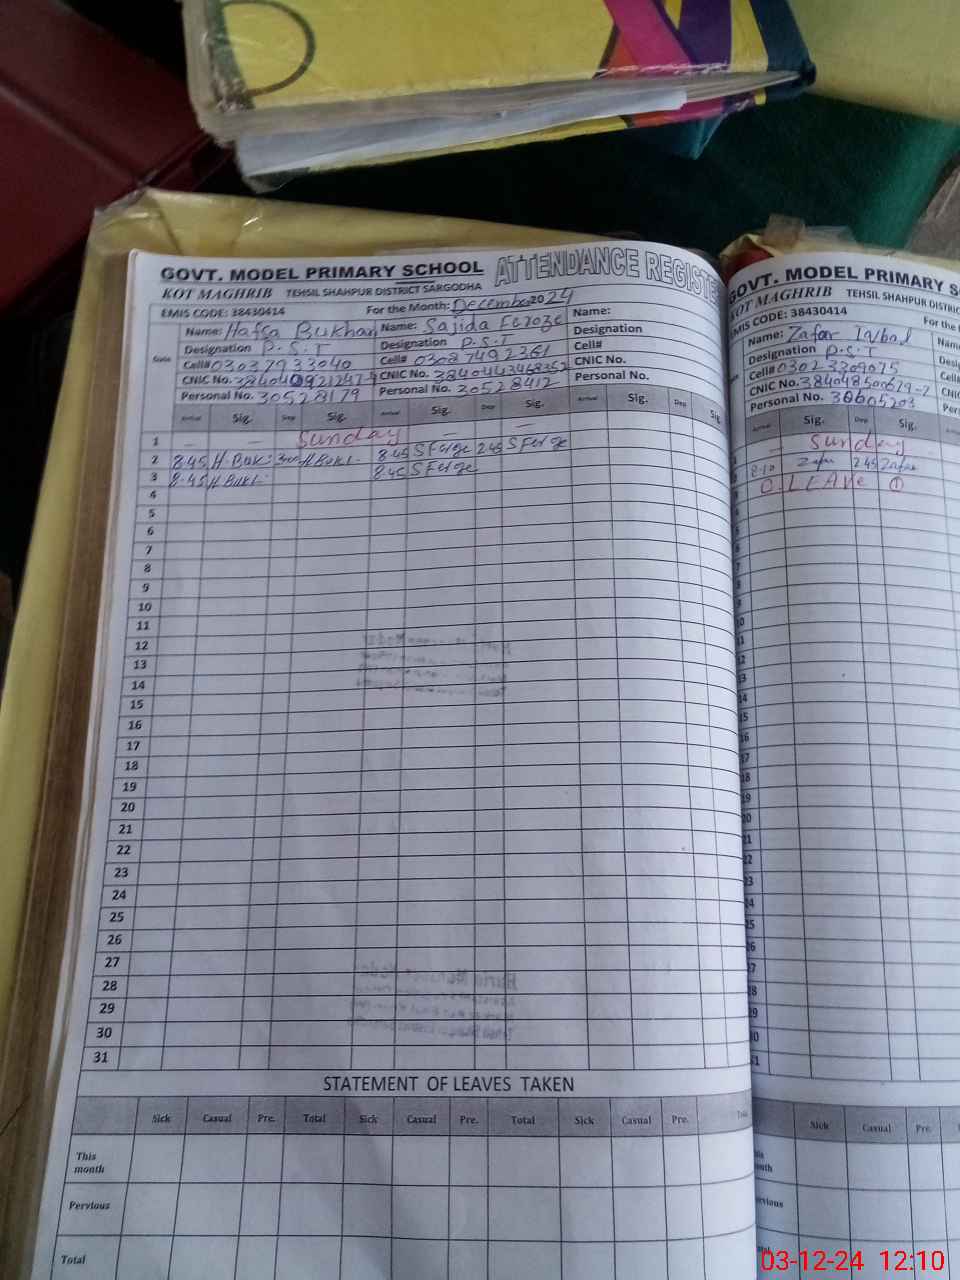 GOVT. MODEL PRIMARY SCHOOL ATTENDANCE REGISTER
KOT MAGHRIB TEHSIL SHAHPUR DISTRICT SARGODHA
EMIS CODE: 38430414 For the Month: December 2024 Name:
Name: Hafsa Bukhari Name: Sajida Feroze Designation
Designation P.S.T Designation P.S.T Cell#
Cell# 03037933040 Cell# 03087492361 CNIC No.
CNIC No. CNIC No. Personal No.
Personal No. 30528179 Personal No. 30528412
Date Arrival Sig. Dep Sig. Arrival Sig. Dep Sig. Arrival Sig. Dep Sig.
1 — — Sunday — —
2 8.45 H.Buk. 300 H.Bukh. 845 SFerge 245 SFerge
3 8.45 H.Bukh. 845 SFerge
4
5
6
7
8
9
10
11
12
13
14
15
16
17
18
19
20
21
22
23
24
25
26
27
28
29
30
31
STATEMENT OF LEAVES TAKEN
Sick Casual Pre. Total Sick Casual Pre. Total Sick Casual Pre. Total
This month
Pervious
Total
GOVT. MODEL PRIMARY
KOT MAGHRIB TEHSIL SHAHPUR
EMIS CODE: 38430414 For the
Name: Zafar Iqbal
Designation P.S.T
Cell# 03023309075
CNIC No.
Personal No.
Arrival Sig. Dep Sig.
— Sunday
8-10 Zafar 245 Zafar
O LEAVE ①
Sick Casual Pre.
03-12-24 12:10